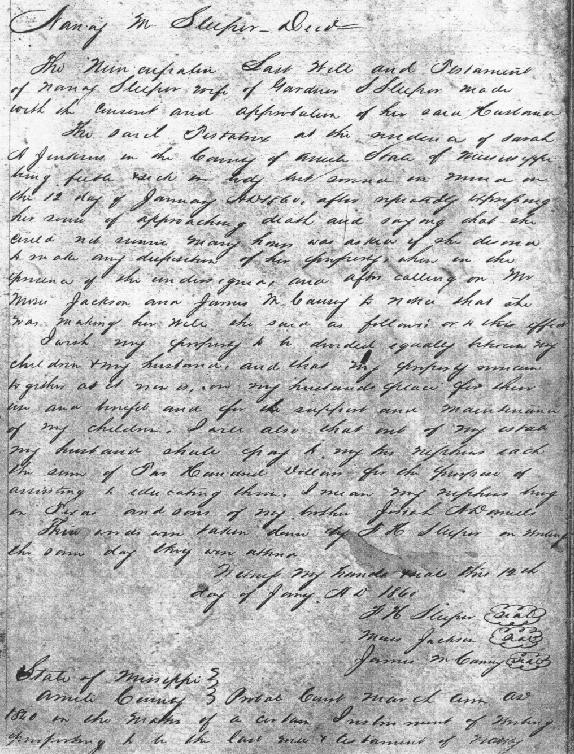 Nancy M Sleeper - Decd
The Nuncupative Last Will and Testament
of Nancy Sleeper wife of Gardner S Sleeper made
with the consent and approbation of her said Husband
The said Testatrix at the residence of Sarah
A Jenkins in the County of Amite State of Mississippi
being feeble & sick in body but sound in mind on
the 12 day of January AD 1860, after repeatedly expressing
her sense of approaching death and saying that she
could not survive many hours was asked if she desired
to make any disposition of her property, when in the
presence of the undersigned, and after calling on Mr
Moses Jackson and James M. Causey to notice that she
was making her will she said as follows or to this effect
I wish my property to be divided equally between my
children & my husband, and that my property remain
together as it now is, on my husbands place for their
use and benefit and for the support and maintenance
of my children. I will also that out of my estate
my husband shall pay to my two nephews each
the sum of Hundred Dollars for the purpose of
assisting to educating them. I mean my nephews living
in Texas and sons of my brother Josiah A Daniels
These words were taken down by F H Sleeper on writing
the same day they were
Witness my hands & seals this 12th
day of Jany. AD 1860
F H Sleeper Seal
Moses Jackson Seal
James M Causey Seal
State of Mississippi
Amite County Probate Court March term AD
1860 in the matter of a certain Instrument of writing
purporting to be the last will & testament of Nancy